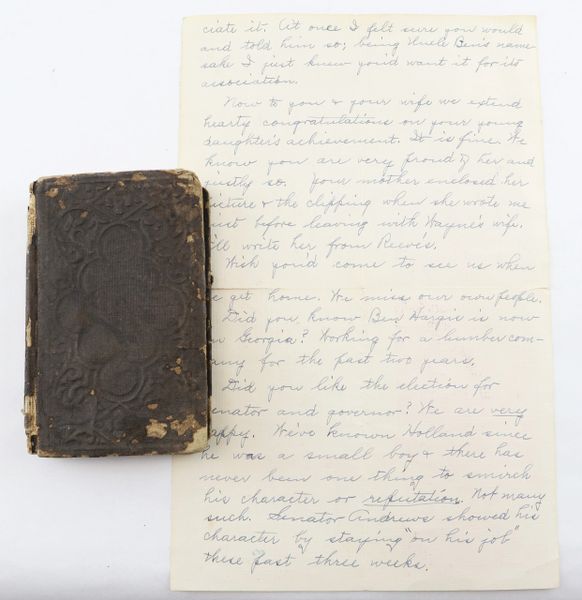 ciate it. At once I felt sure you would
and told him so; being Uncle Ben's name-
sake I just knew you'd want it for its
association.
Now to you & your wife we extend
hearty congratulations on your young
daughter's achievement. It is fine. We
know you are very proud of her and
justly so. Your mother enclosed her
picture & the clipping when she wrote me
just before leaving with Wayne's wife.
I'll write her from Reeve's.
Wish you'd come to see us when
we get home. We miss our own people.
Did you know Ben Hargis is now
in Georgia? Working for a lumber com-
pany for the past two years.
Did you like the election for
senator and governor? We are very
happy. We've known Holland since
he was a small boy & there has
never been one thing to smirch
his character or reputation. Not many
such. Senator Andrews showed his
character by staying "on his job"
these past three weeks.